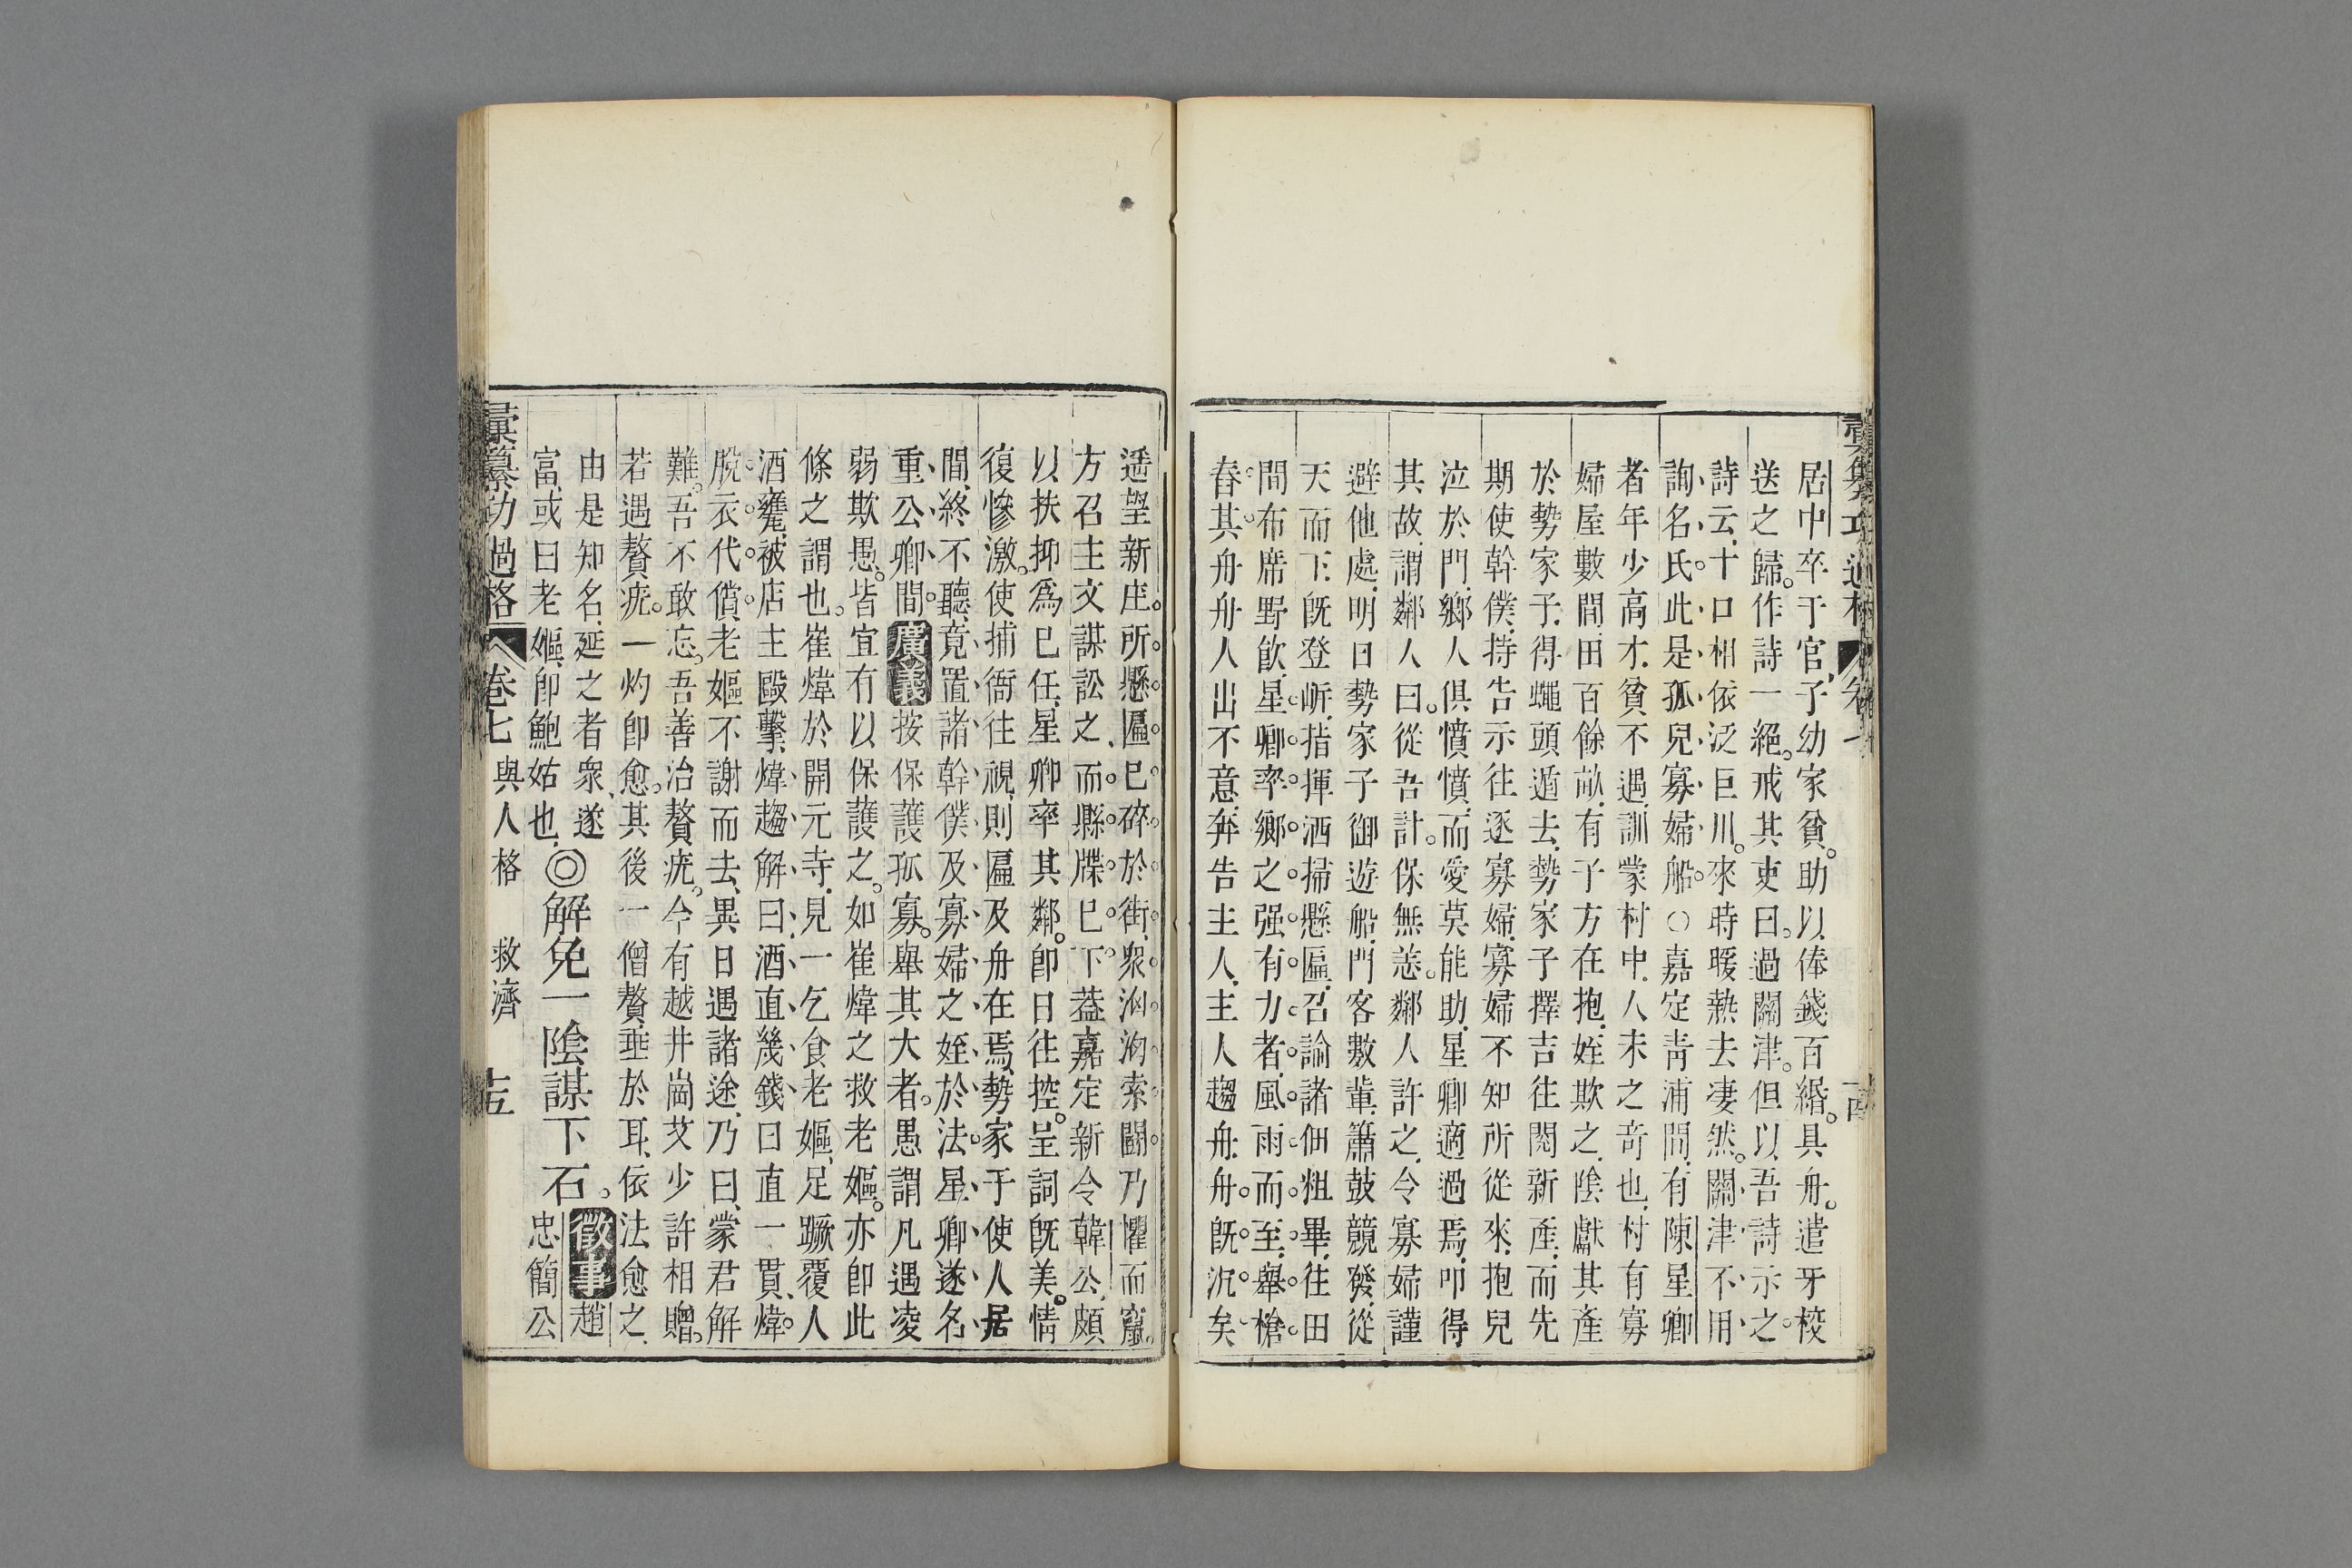 居中卒于官子幼家貧助以俸錢百緡具舟遣牙校
送之歸作詩一絕戒其吏曰過關津但以吾詩示之
詩云十口相依泛巨川來時暖熱去凄然關津不用
詢名氏此是孤兒寡婦船○嘉定靑浦間有陳星卿
者年少高才貧不遇訓蒙村中人未之竒也村有寡
婦屋數間田百餘畝有子方在抱姪欺之陰獻其產
於勢家子得蠅頭遁去勢家子擇吉往閱新產而先
期使幹僕持告示往逐寡婦寡婦不知所從來抱兒
泣於門鄉人俱憤憤而愛莫能助星卿適過焉叩得
其故謂鄰人曰從吾計保無恙鄰人許之令寡婦謹
避他處明日勢家子御遊船門客數輩簫鼓競發從
天而下旣登岸指揮洒掃懸匾召諭諸佃粗畢徃田
間布席野飲星卿率鄉之强有力者風雨而至舉槍
舂其舟舟人出不意奔告主人主人趨舟舟旣沉矣
遥望新庄所懸匾已碎於街衆洶洶索鬪乃懼而竄
方召主文謀訟之而縣牒已下葢嘉定新令韓公頗
以扶抑爲己任星卿率其鄰卽日往控呈詞旣美情
復慘激使捕衙往視則匾及舟在焉勢家于使人居
間終不聽竟置諸幹僕及寡婦之姪於法星卿遂名
重公卿間廣義按保護孤寡舉其大者愚謂凡遇凌
弱欺愚皆宜有以保護之如崔煒之救老嫗亦卽此
條之謂也崔煒於開元寺見一乞食老嫗足蹶覆人
酒甕被店主毆擊煒趨解曰酒直幾錢曰直一貫煒
脫衣代償老嫗不謝而去異日遇諸途乃曰蒙君解
難吾不敢忘吾善治贅疣今有越井崗艾少許相贈
若遇贅疣一灼卽愈其後一僧贅垂於耳依法愈之
由是知名延之者衆遂
富或曰老嫗卽鮑姑也◎解免一陰謀下石徵事趙
忠簡公
彙纂功過格 卷七 與人格 救濟 十五